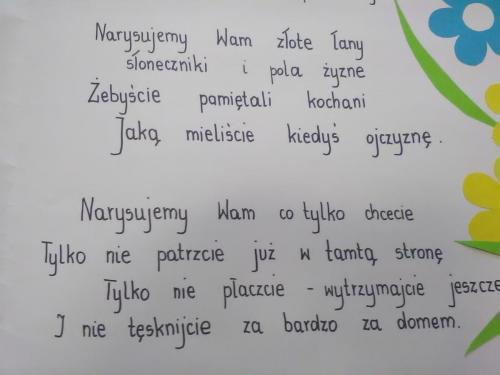 Narysujemy Wam złote łany
słoneczniki i pola żyzne
Żebyście pamiętali kochani
Jaką mieliście kiedyś ojczyznę.
Narysujemy Wam co tylko chcecie
Tylko nie patrzcie już w tamtą stronę
Tylko nie płaczcie - wytrzymajcie jeszcze
I nie tęsknijcie za bardzo za domem.